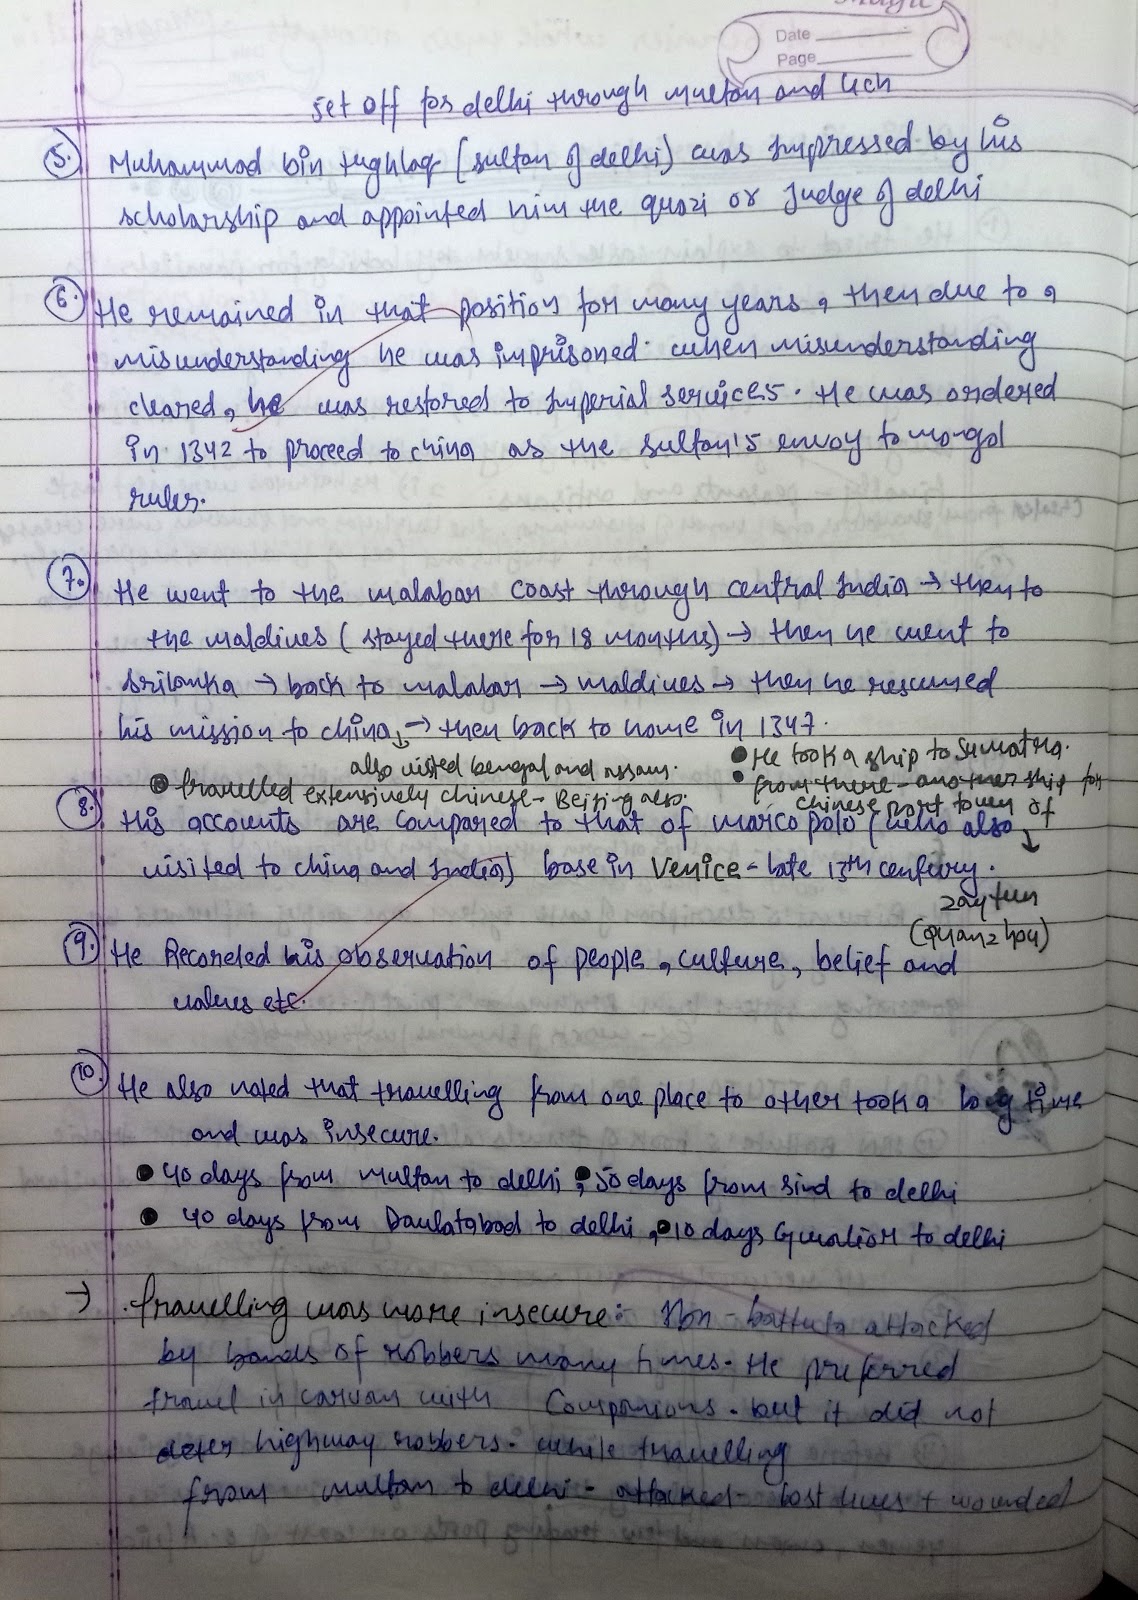 Magic
Date
Page
set off for delhi through multan and Uch
5. Muhammad bin tughlaq (sultan of delhi) was impressed by his
scholarship and appointed him the quazi or Judge of delhi
6. He remained in that position for many years, then due to a
misunderstanding he was imprisoned. when misunderstanding
cleared, he was restored to imperial services. He was ordered
in 1342 to proceed to china as the sultan's envoy to mongol
ruler.
7. He went to the malabar coast through central India → then to
the maldives (stayed there for 18 months) → then he went to
srilanka → back to malabar → maldives → then he resumed
his mission to china → then back to home in 1347.
also visited bengal and assam.
• He took a ship to Sumatra.
• travelled extensively chinese - Beijing also.
• from there - another ship for
chinese port town of
zaytun
(Quanzhou)
8. His accounts are compared to that of marco polo (who also
visited to china and India) base in Venice - late 13th century.
9. He Recorded his observation of people, culture, belief and
values etc.
10. He also noted that travelling from one place to other took a long time
and was insecure.
• 40 days from multan to delhi, • 50 days from sind to delhi
• 40 days from Daulatabad to delhi, • 10 days Gwalior to delhi
→ travelling was more insecure:- Ibn-battuta attacked
by bands of robbers many times. He preferred
travel in carvan with Companions. but it did not
deter highway robbers. while travelling
from multan to delhi - attacked - lost lives + wounded